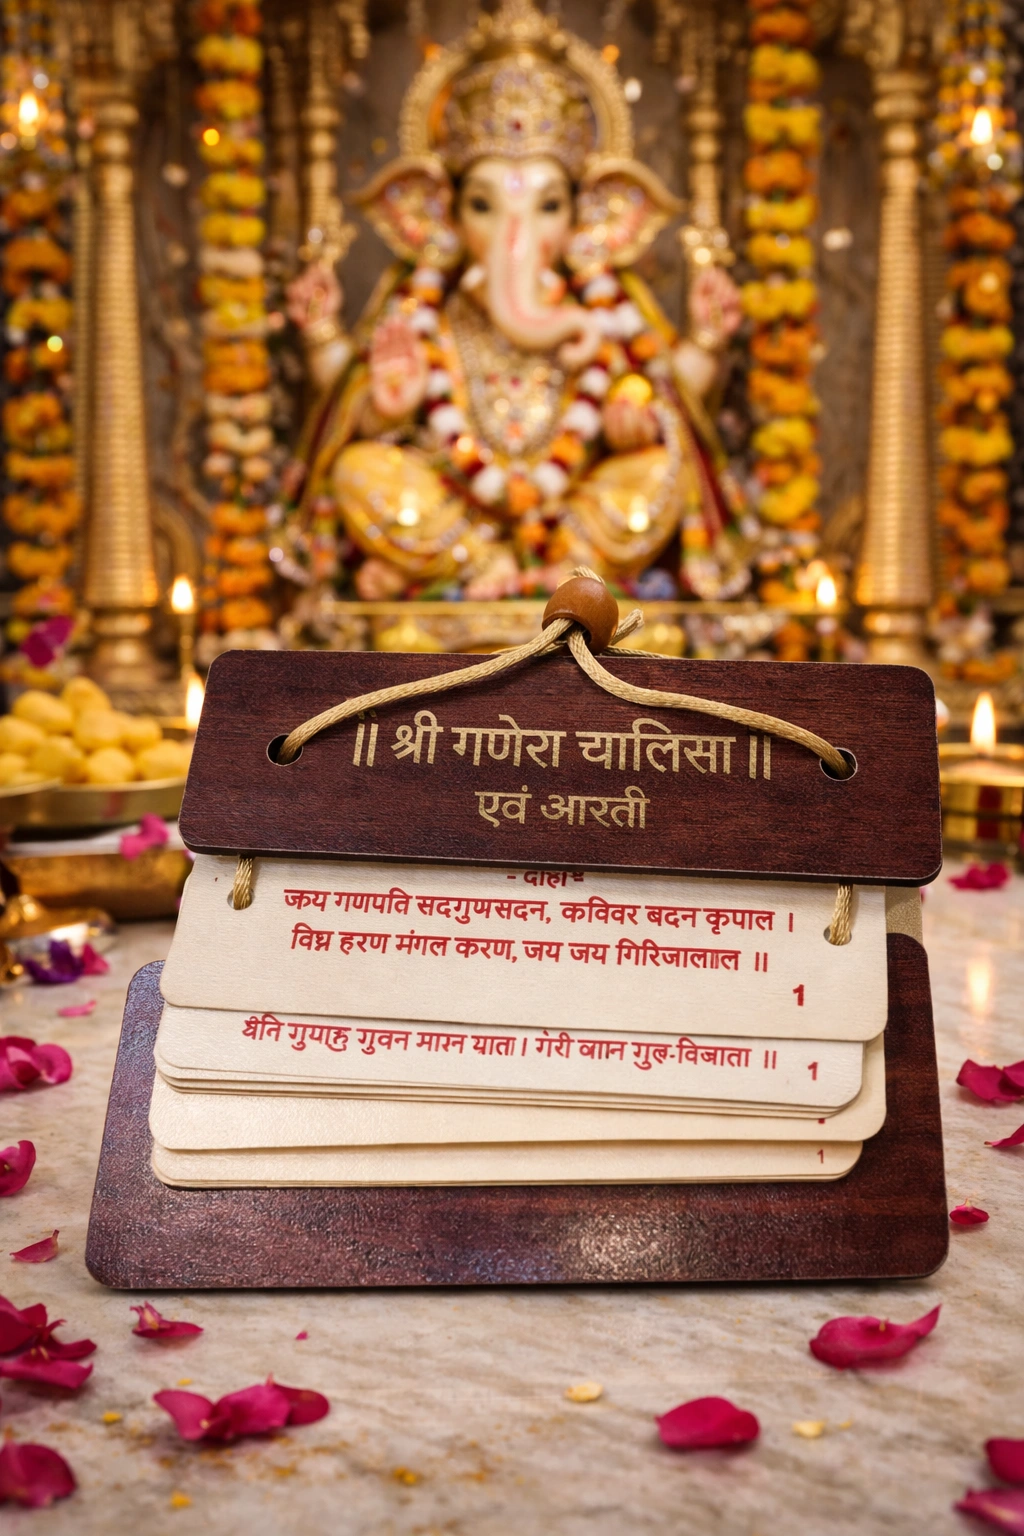 ॥ श्री गणेरा चालिसा ॥
एवं आरती
- दोहा -
जय गणपति सदगुणसदन, कविवर बदन कृपाल ।
विघ्न हरण मंगल करण, जय जय गिरिजालाल ॥
1
1
1